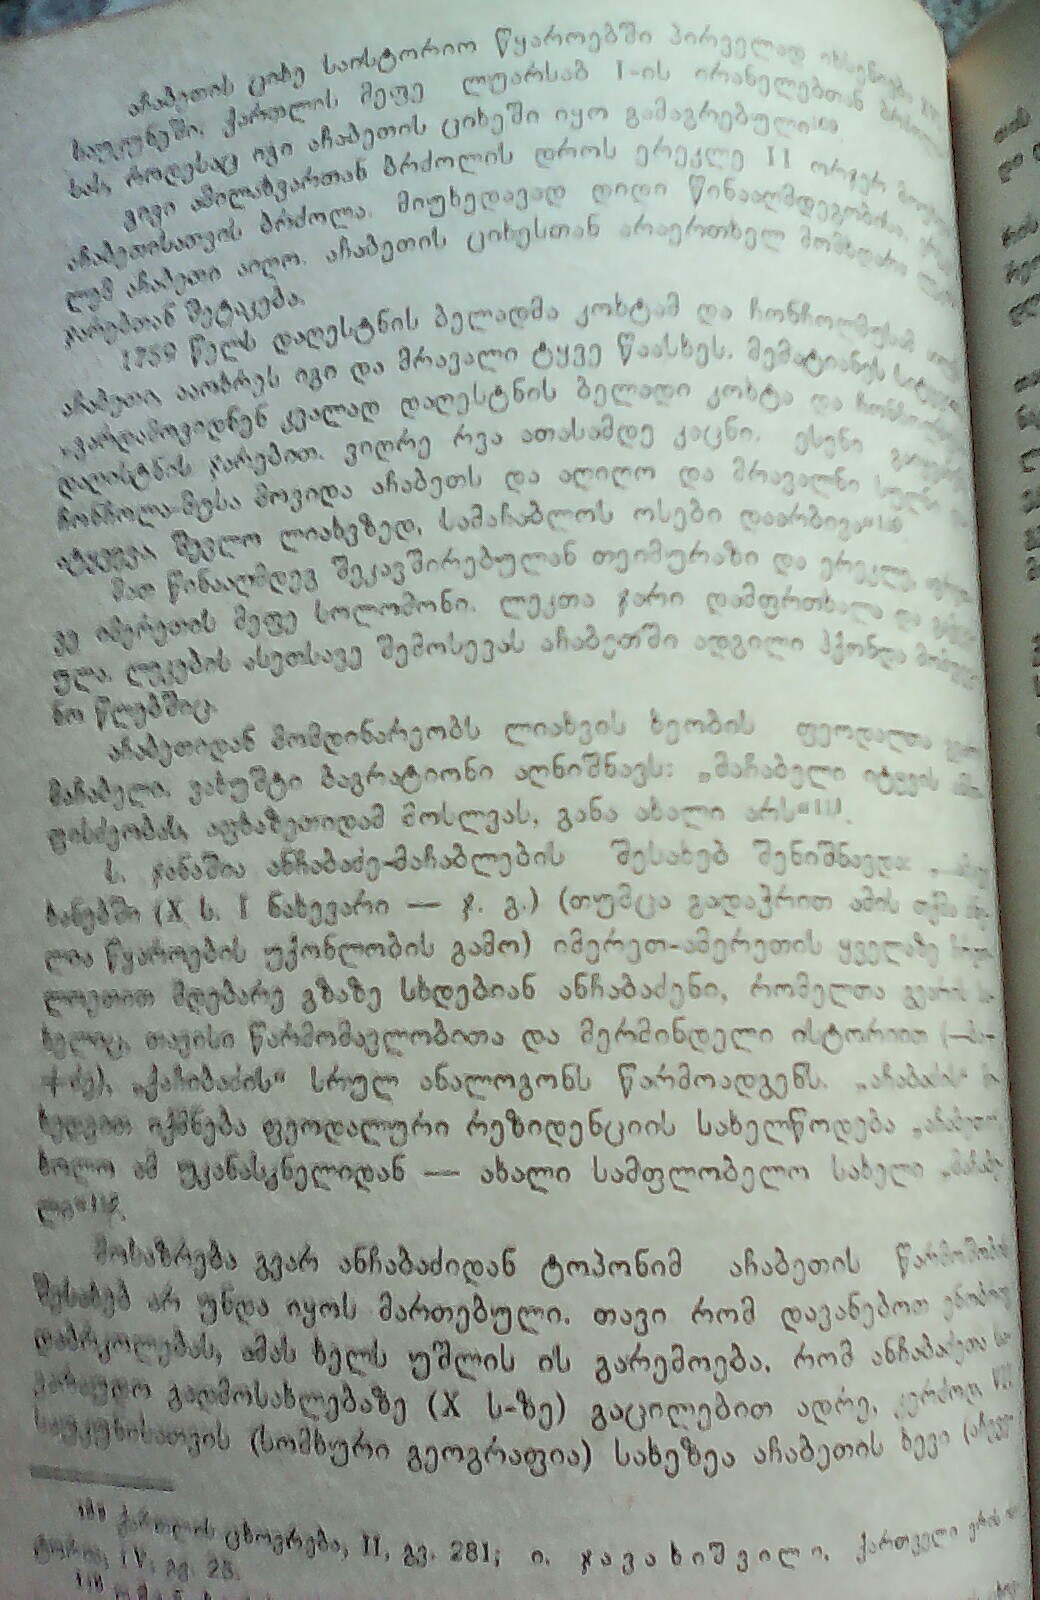 აჩაბეთის ციხე საისტორიო წყაროებში პირველად იხსენიება
საუკუნეში. ქართლის მეფე ლუარსაბ I-ის ირანელებთან ბრძოლი-
სას, როდესაც იგი აჩაბეთის ციხეში იყო გამაგრებული
გივი ამილახვართან ბრძოლის დროს ერეკლე II ორჯერ
აჩაბეთისათვის ბრძოლა. მიუხედავად დიდი წინააღმდეგობისა,
ლემ აჩაბეთი აიღო. აჩაბეთის ციხესთან არაერთხელ მომხდარა
ჯარებთან შეტაკება.
წელს დაღესტნის ბელადმა კოხტამ და ჩონჩოლმუსამ
აჩაბეთი, ააოხრეს იგი და მრავალი ტყვე წაასხეს. მემატიანეს
„გარდამოვიდნენ კვალად დაღესტნის ბელადი კოხტა და
დაღისტნის ჯარებით, ვიდრე რვა ათასამდე კაცნი. ესენი
ჩონჩოლა-მუსა მოვიდა აჩაბეთს და აღიღო და მრავალნი სულნი
შევლო ლიახვზედ, სამაჩაბლოს ოსები დაარბივა“
მათ წინააღმდეგ შეკავშირებულან თეიმურაზი და ერეკლე,
ვე იმერეთის მეფე სოლომონი. ლეკთა ჯარი დამფრთხალა და
ულა. ლეკების ასეთსავე შემოსევას აჩაბეთში ადგილი ჰქონდა
ნო წლებშიც.
აჩაბეთიდან მომდინარეობს ლიახვის ხეობის ფეოდალთა
მაჩაბელი. ვახუშტი ბაგრატიონი აღნიშნავს: „მაჩაბელი იტყვის
ფისძეობას, აფხაზეთიდამ მოსლვას, განა ახალი არს“¹¹¹.
ს. ჯანაშია ანჩაბაძე-მაჩაბლების შესახებ შენიშნავდა:
ხანებში (X ს. I ნახევარი — ჯ. გ.) (თუმცა გადაჭრით ამის თქმა
ლია წყაროების უქონლობის გამო) იმერეთ-ამერეთის ყველაზე
ლოეთით მდებარე გზაზე სხდებიან ანჩაბაძენი, რომელთა გვარის
ხელიც, თავისი წარმომავლობითა და მერმინდელი ისტორიით
+ძე), „ქაჩიბაძის“ სრულ ანალოგონს წარმოადგენს. „აჩაბაძის“
ხედვით იქმნება ფეოდალური რეზიდენციის სახელწოდება „აჩაბეთი“,
ხოლო ამ უკანასკნელიდან — ახალი სამფლობელო სახელი „მაჩაბე-
ლი“
მოსაზრება გვარ ანჩაბაძიდან ტოპონიმ აჩაბეთის წარმოშობის
შესახებ არ უნდა იყოს მართებული. თავი რომ დავანებოთ ენობრივ
დაბრკოლებას, ამას ხელს უშლის ის გარემოება, რომ ანჩაბაძეთა
გადმოსახლებაზე (X ს-ზე) გაცილებით ადრე, კერძოდ VII
საუკუნისათვის (სომხური გეოგრაფია) სახეზეა აჩაბეთის ხევი
ქართლის ცხოვრება, II, გვ. 281; ი. ჯავახიშვილი, ქართველი ერის
ტორია, IV, გვ. 23.